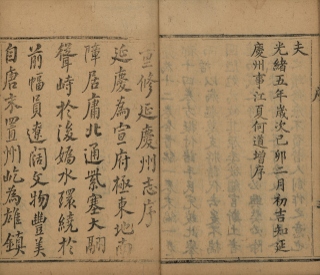 夫
光緒五年歲次己卯二月初吉知延
慶州事江夏何道增序
重修延慶州志序
延慶為宣府極東地南
障居庸北通紫塞大翮
聳峙於後媯水環繞於
前幅員遼闊文物豐美
自唐宋置州屹為雄鎮